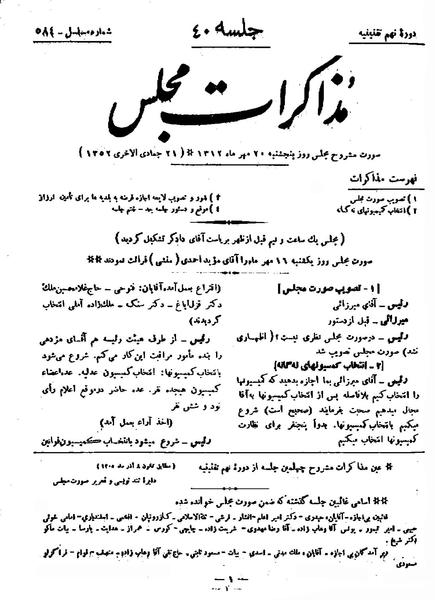 دورهٔ نهم تقنینیه
جلسه ۴۰
شماره مسلسل - ۵۸۴
مذاکرات مجلس
صورت مشروح مجلس روز پنجشنبه ۲۰ مهر ماه ۱۳۱۲ * (۲۱ جمادی الاخری ۱۳۵۲)
فهرست مذاکرات
۱) تصویب صورت مجلس
۲) انتخاب کمیسیونهای نه گانه
۳) شور و تصویب لایحه اجازه قرضه به بلدیه ها برای تأمین ارزاز
۴) موقع و دستور جلسه بعد - ختم جلسه
(مجلس یک ساعت و نیم قبل از ظهر بریاست آقای دادگر تشکیل گردید)
صورت مجلس روز یکشنبه ۱۶ مهر ماه را آقای مؤید احمدی (منشی) قرائت نمودند **
[۱ - تصویب صورت مجلس]
رئیس - آقای میرزائی
میرزائی - قبل از دستور
رئیس - در صورت مجلس نظری نیست؟ (اظهاری
نشد) صورت مجلس تصویب شد
[۲ - انتخاب کمسیونهای نه گانه]
رئیس - آقای میرزائی بما اجازه بدهید که کمیسیونها
را انتخاب کنیم بلافاصله پس از انتخاب کمیسیونها به آقا
مجال میدهیم صحبت بفرمایند (صحیح است) شروع
میکنیم بانتخاب کمیسیونها. بدواً پنجنفر برای نظارت
کمیسیونها انتخاب میکنیم
(اقتراع بعمل آمده آقایان: فتوحی - حاج غلامحسین ملک
دکتر قزل ایاغ - دکتر سنگ - ملک زاده آملی انتخاب
گردیدند)
رئیس - از طرف هیئت رئیسه هم آقای مؤدهی
را بنده مأمور مراقبت این کار می کنم. شروع می شود
بانتخاب کمیسیونها: انتخاب کمیسیون عدلیه. عده اعضاء
کمیسیون هیجده نفر. عده حاضر در موقع اعلام رأی
نود و شش نفر
(اخذ آراء بعمل آمد)
رئیس - شروع میشود بانتخاب کمیسیون قوانین
** عین مذاکرات مشروح چهلمین جلسه از دورهٔ نهم تقنینیه
(مطابق قانون ۸ آذر ماه ۱۳۰۵)
دایرهٔ تند نویسی و تحریر صورت مجلس
** اسامی غائبین جلسه گذشته که ضمن صورت مجلس خوانده شده
دکتر شیخ.
مسعودی
- ۱ -